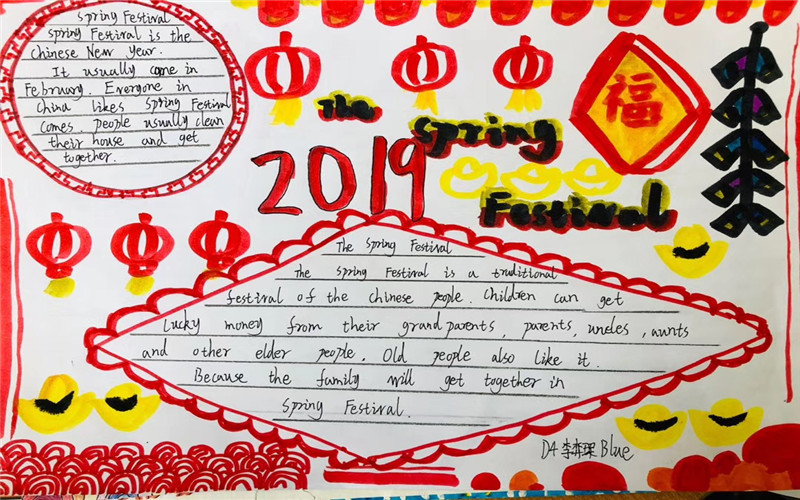 Spring Festival
spring Festival is the
Chinese New Year.
It usually come in
February. Everyone in
China likes Spring Festival
comes. people usually clean
their house and get
together.
The
Spring
Festival
福
2019
The Spring Festival
The Spring Festival is a traditional
festival of the chinese people. Children can get
Lucky money from their grandparents, parents, uncles, aunts
and other elder people. Old people also like it.
Because the family will get together in
Spring Festival.
D4 李 Blue